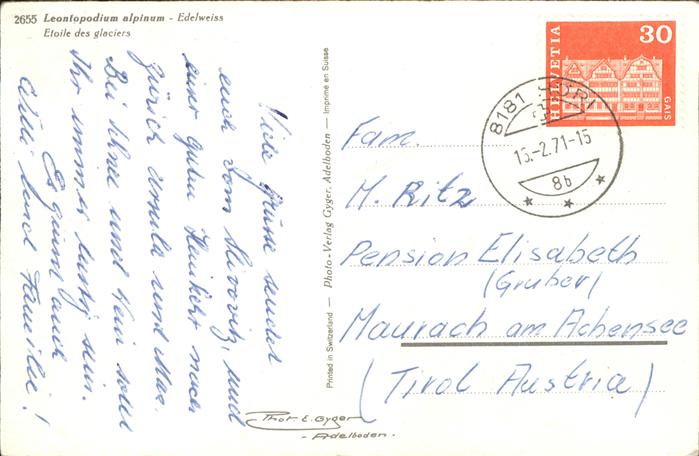 2655 Leontopodium alpinum - Edelweiss
Etoile des glaciers
Viele Grüsse sendet
euch vom Slivovitz, und
einer guten Heimkehr nach
Zürich Ursula und Max.
Bei Schnee und Wein sollt
Ihr immer lustig sein.
Es grüsst euch
Willi und Familie!
Printed in Switzerland — Photo-Verlag Gyger, Adelboden — Imprimé en Suisse
Phot. E. Gyger
- Adelboden -
HELVETIA
30
GAIS
8181 HÖRI
15.-2.71-15
8b
Fam.
M. Ritz
Pension Elisabeth
(Gruber)
Maurach am Achensee
(Tirol Austria)